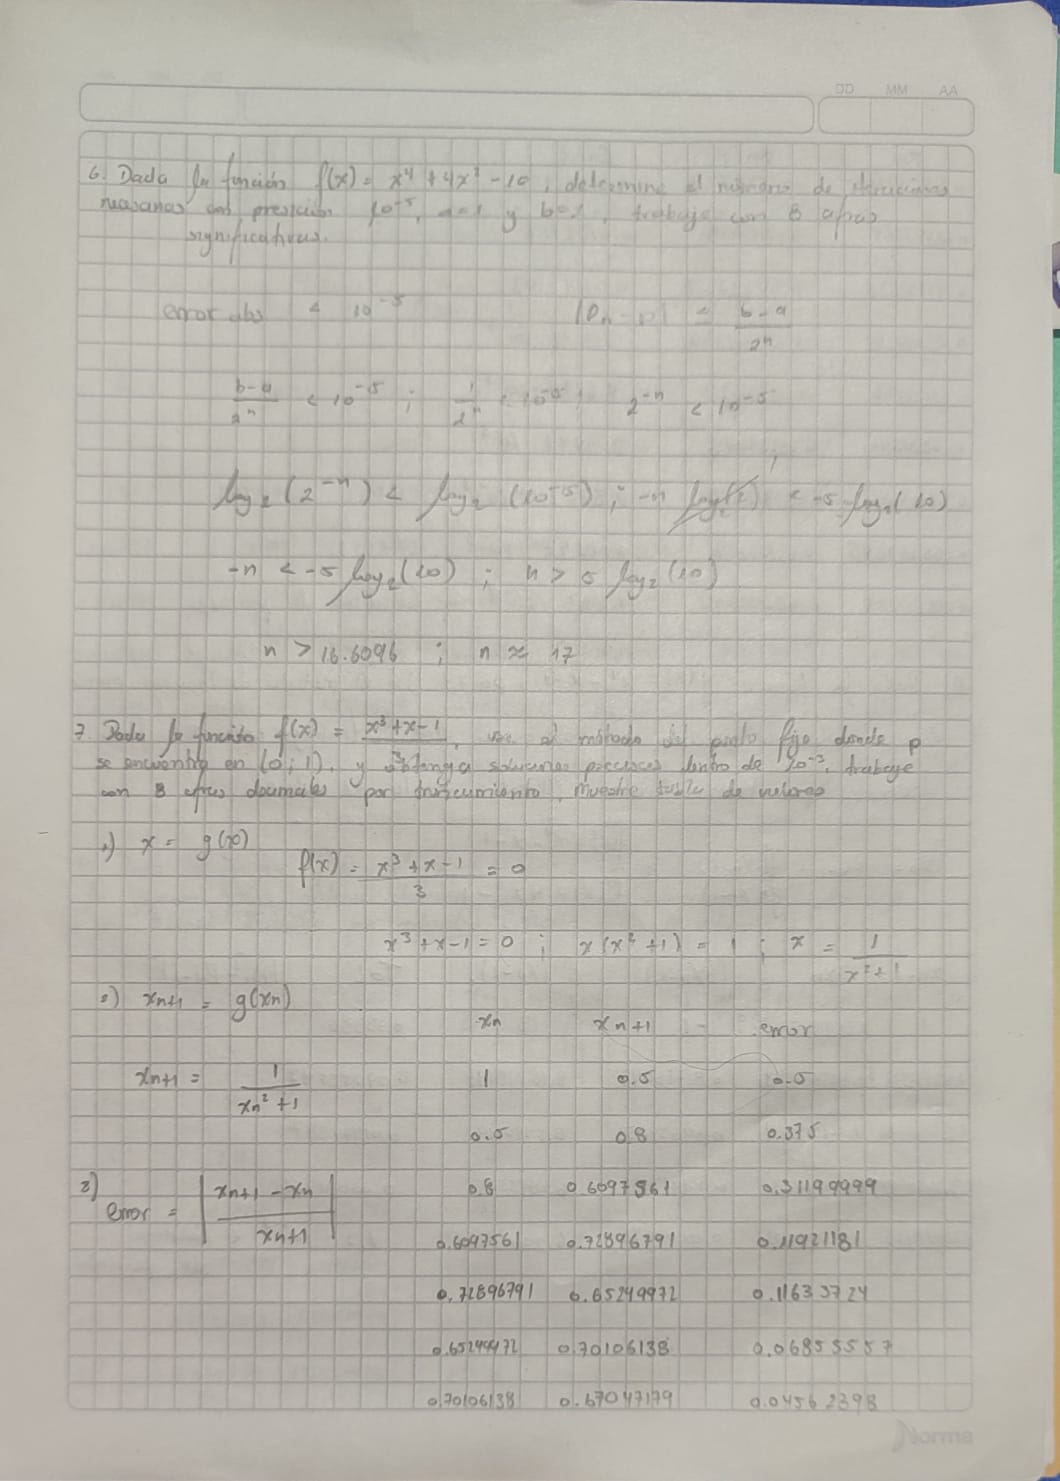 DD MM AA
6. Dada la función f(x) = x⁴ + 4x² - 10, determine el número de iteraciones
necesarias con precisión 10⁻⁵, a=1 y b=2, trabaje con 8 cifras
significativas.
error abs < 10⁻⁵ |Pn - p| < (b-a)/2ⁿ
(b-a)/2ⁿ < 10⁻⁵ ; 1/2ⁿ < 10⁻⁵ ; 2⁻ⁿ < 10⁻⁵
log₂(2⁻ⁿ) < log₂(10⁻⁵) ; -n log₂(2) < -5 log₂(10)
-n < -5 log₂(10) ; n > 5 log₂(10)
n > 16.6096 ; n ≈ 17
7. Dada la función f(x) = (x³+x-1)/3, use el método del punto fijo donde p
se encuentra en (0;1), y obtenga soluciones precisas dentro de 10⁻³, trabaje
con 8 cifras decimales por truncamiento, muestre tabla de valores
1) x = g(x)
f(x) = (x³+x-1)/3 = 0
x³+x-1 = 0 ; x(x²+1) = 1 ; x = 1/(x²+1)
2) xn+1 = g(xn)
xn xn+1 error
xn+1 = 1/(xn²+1) 1 0.5 0.5
0.5 0.8 0.375
3) error = |(xn+1 - xn)/xn+1| 0.8 0.6097561 0.31199999
0.6097561 0.72896791 0.11921181
0.72896791 0.65249972 0.11633724
0.65249972 0.70106138 0.06855557
0.70106138 0.67047179 0.04562398
Norma